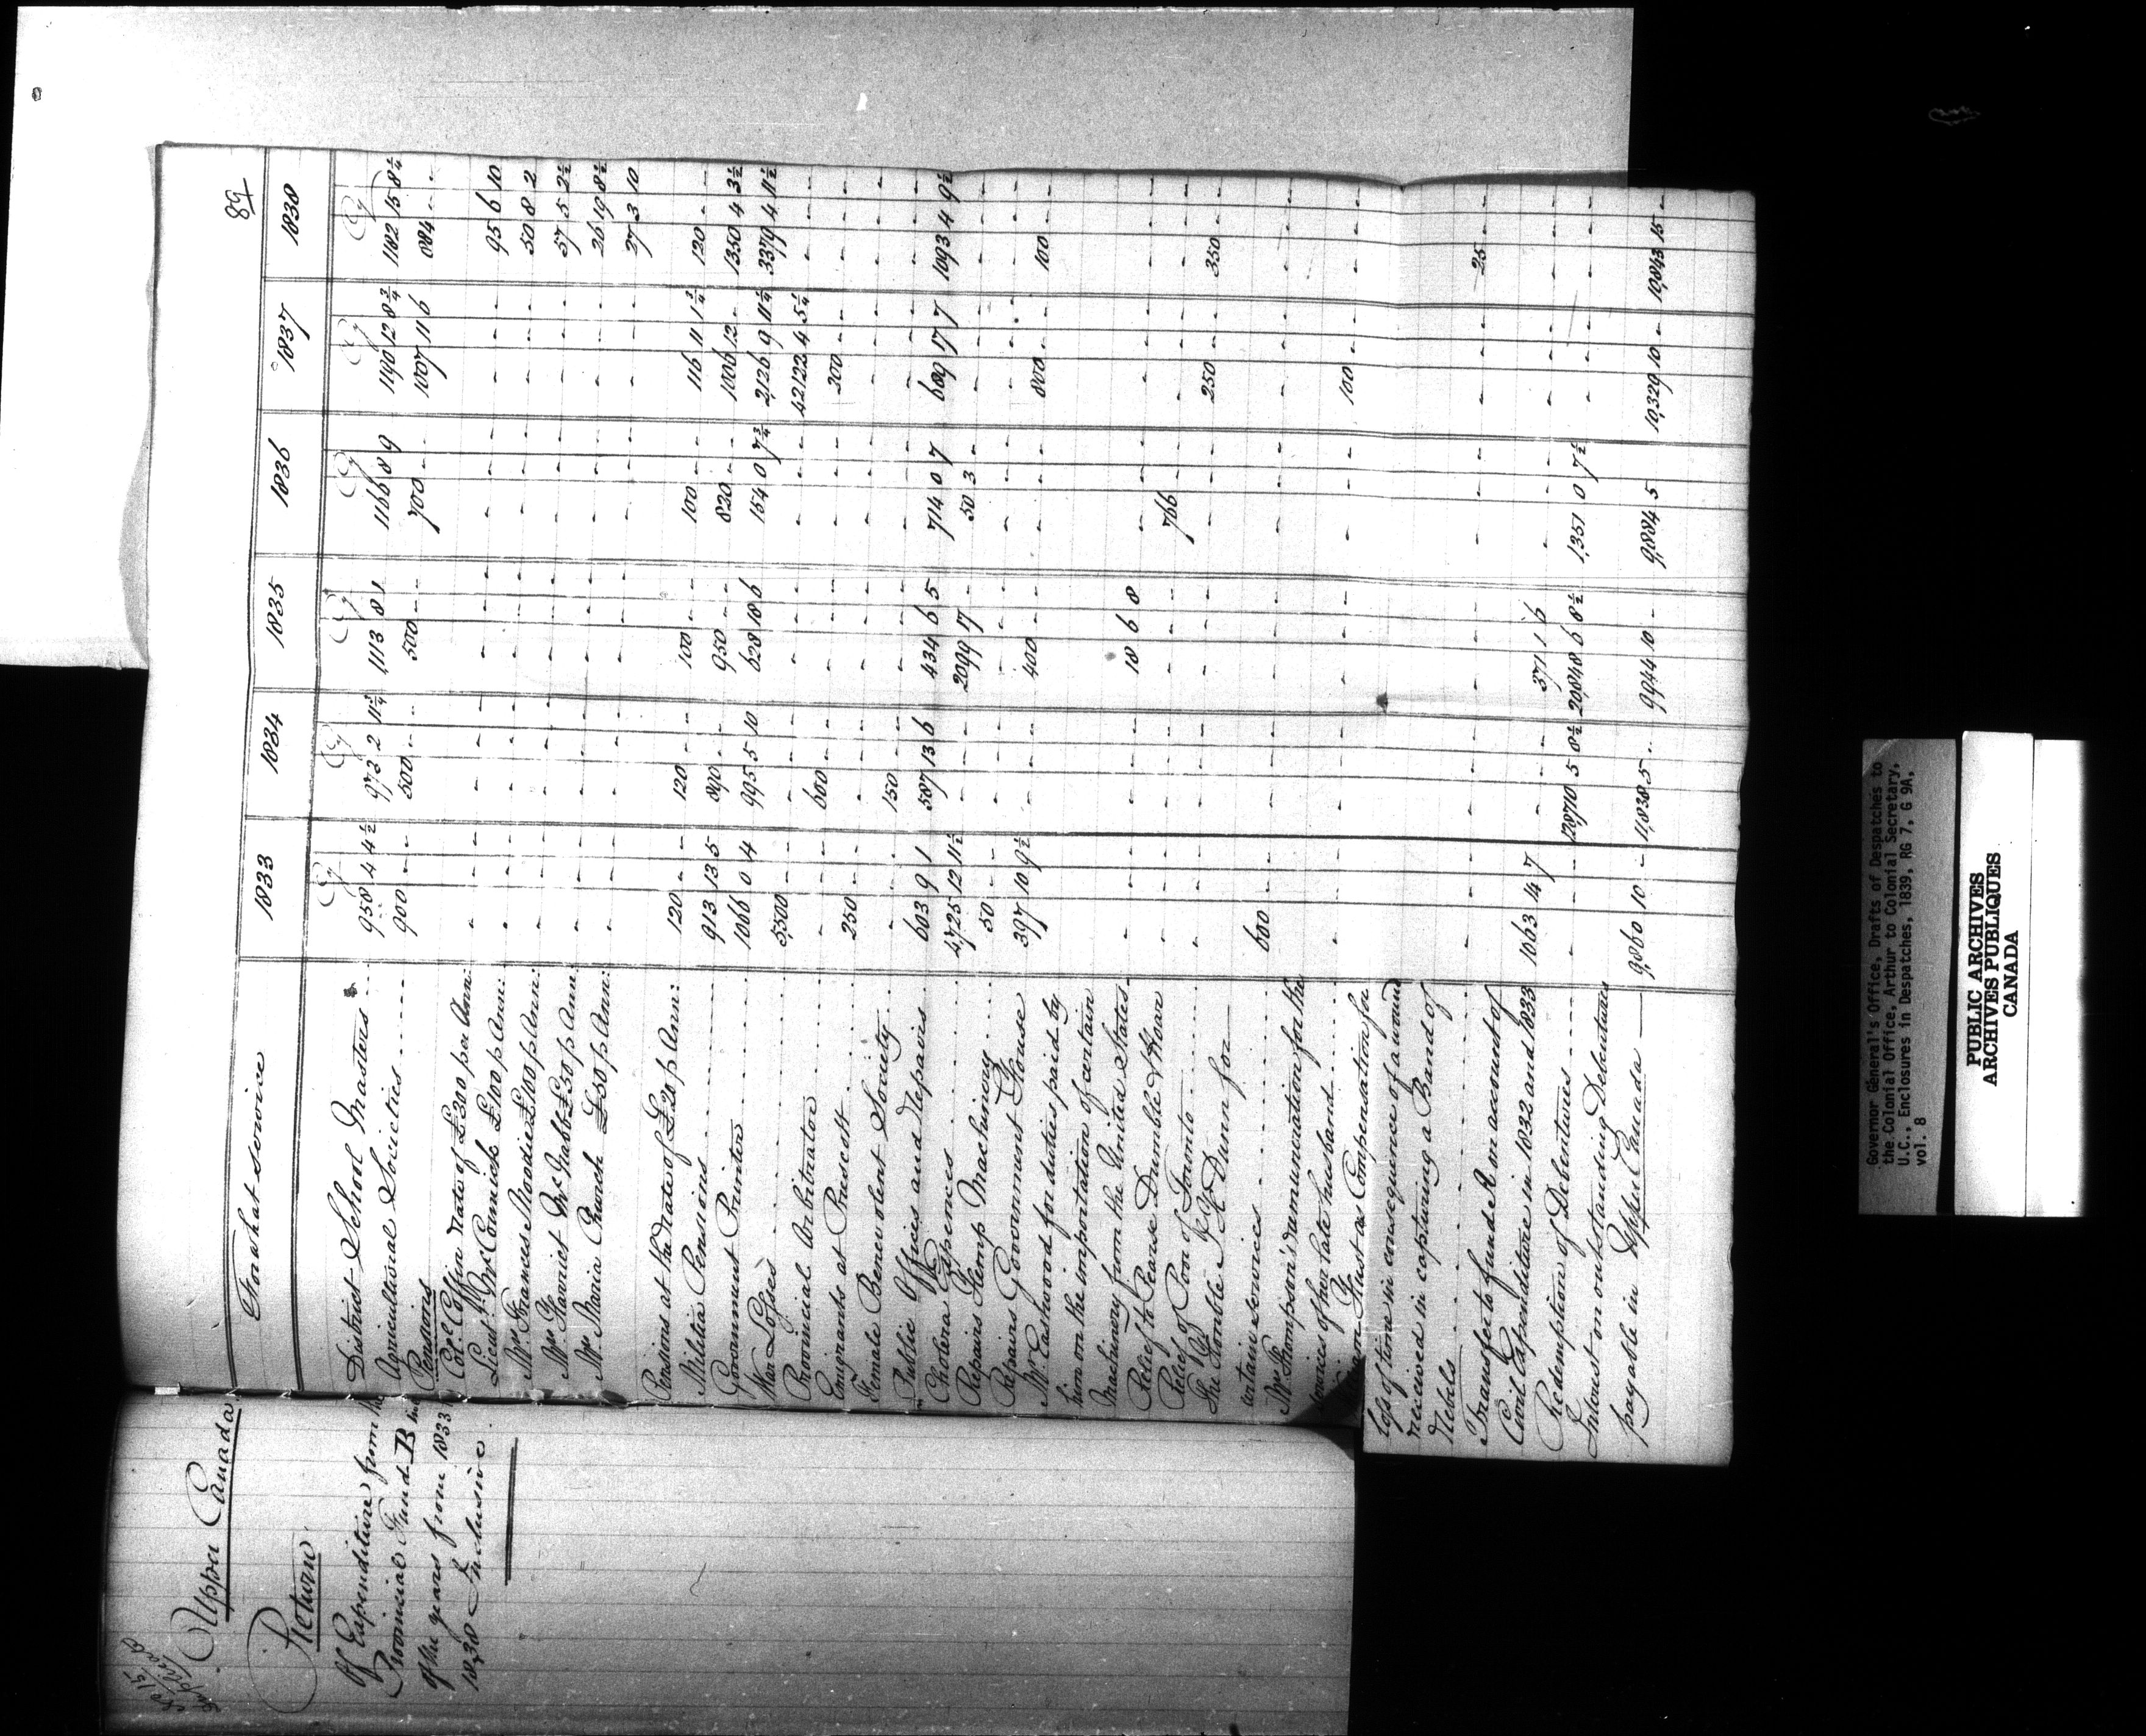 Upper Canada
Return
Of Expenditure from the
Provincial Fund B
of the years from 1833
1838 Inclusive
89
For what service 1833 1834 1835 1836 1837 1838
Cy Cy Cy Cy Cy Cy
District School Masters 950 4 4½ 972 2 11¾ 1113 8 1 1166 8 9 1190 12 8¾ 1182 15 8¼
Agricultural Societies 900 - - 500 - - 500 - - 700 - - 1007 11 6 884 - -
Pensions
Col. Coffin Rate of £300 per Ann: - - - - - 95 6 10
Lieut. McCormick £100 p Ann: - - - - - 50 8 2
Mrs Frances Moodie £100 p Ann: - - - - - 57 5 2½
Mrs Harriet McNabb £50 p Ann - - - - - 26 19 8½
Mrs Maria French £50 p Ann: - - - - - 27 3 10
Pensions at the Rate of £20 p Ann: 120 - - 120 - - 100 - - 100 - - 116 11 1¾ 120 - -
Militia Pensions 913 13 5 890 - - 950 - - 820 - - 1006 12 - 1350 4 3½
Government Printer 1066 0 4 995 5 10 628 18 6 154 0 7¾ 2,126 9 11¼ 3379 4 11½
War Losses 5,500 - - - - - 42122 4 5¼ -
Provincial Arbitrator - 600 - - - - 200 - - -
Emigrants at Prescott 250 - - - - - - -
Female Benevolent Society - 150 - - - - - -
Public Offices and Repairs 603 9 1 587 13 6 434 6 5 714 0 7 689 17 7 1093 4 9½
Cholera Expences 4,725 12 11½ - 2099 17 - 50 3 - - -
Repairs Hemp Machinery 50 - - - - - - -
Repairs Government House 397 10 9½ - 400 - - - 800 - - 100 - -
Mr Eastwood for duties paid by
him on the importation of certain
Machinery from the United States - - 18 6 8 - - -
Relief to Pearse Dumble & Hoar - - - 766 - - - -
Relief of Poor of Toronto - - - - 250 - - 350 - -
The Honble J. H. Dunn for
certain services 600 - - - - - - -
Mrs Thompson's remuneration for the
services of her late husband - - - - 100 - - -
Hust as Compensation for
loss of time in consequence of a wound
received in capturing a Band of
Rebels - - - - - 25 - -
Transfer to fund A on account of
Civil Expenditure in 1832 and 1833 1063 14 7 - 371 1 6 - - -
Redemption of Debentures - 128710 5 8½ 20848 6 8½ 1,351 0 7½ - -
Interest on outstanding Debentures
payable in Upper Canada 9,860 10 - 11,838 5 - 9944 10 - 9,884 5 - 10,329 10 - 10,843 15 -
Governor General's Office, Drafts of Despatches to
the Colonial Office, Arthur to Colonial Secretary,
U.C., Enclosures in Despatches, 1839, RG 7, G 9A,
vol. 8
PUBLIC ARCHIVES
ARCHIVES PUBLIQUES
CANADA